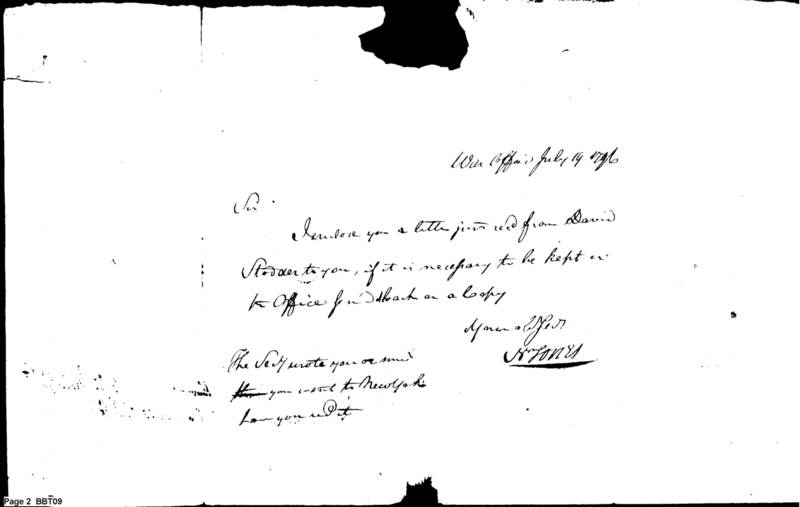 War Office July 19 1796
Sir
I enclose you a letter just recd from David
Stodder to you, if it is necessary to be kept in
the Office send it back or a Copy
Yours
Wm Jones
The Secy wrote you
you went to New York
have you recd it
Page 2 BBT09